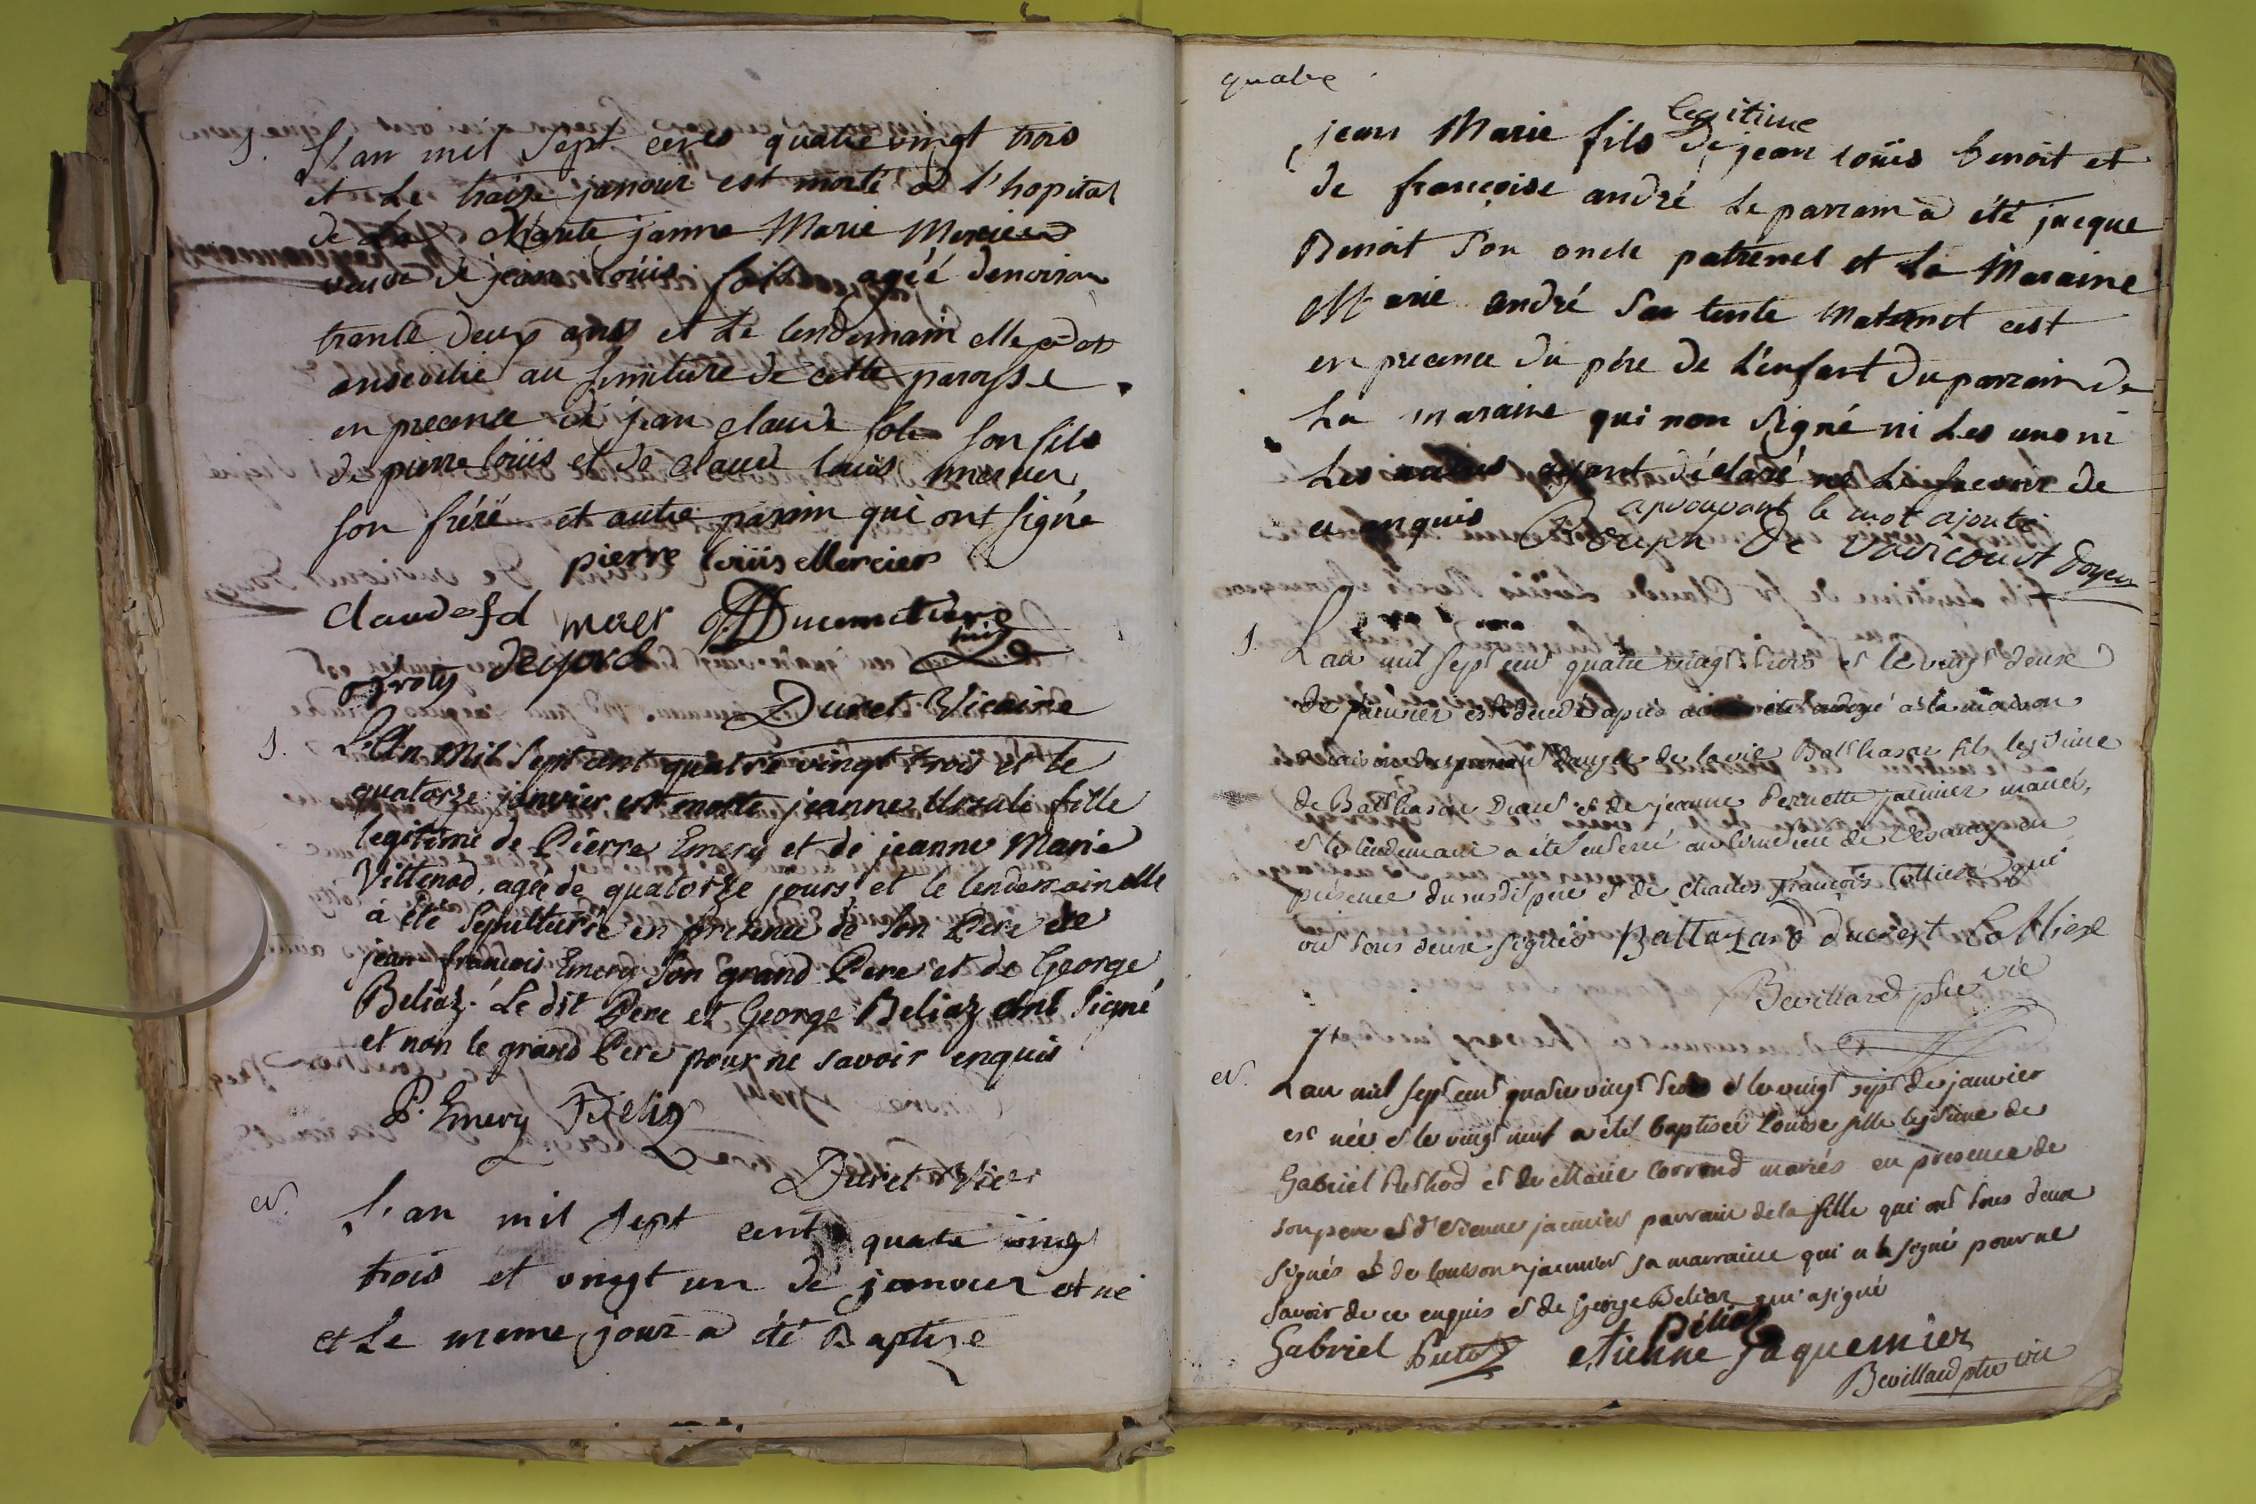 S. L'an mil sept cents quatre vingt trois
et le traize janvier est morte a l'hopital
de la charite janne Marie Mercier
veuve de jean loüis agéé denviron
trente deux ans et le lendemain elle a été
ansevelie au simitiere de cette paroysse
en precence de jean claude son fils
de pierre loüis et de claude louis mercier
son frere et autre parain qui ont signé
pierre loüis Mercier
claude fd mcier Ducimetiere
proty
Duret Vicaire
S. L'An Mil Sept cent quatre vingt trois et le
quatorze janvier est morte jeanne Ursule fille
legitime de Pierre Emery et de jeanne Marie
Vittenod, agée de quatorze jours et le lendemain elle
à été Sepulturée en présence de son Pere de
jean françois Emery son grand Pere et de George
Beliaz. Le dit Pere et George Beliaz ont signé
et non le grand Pere pour ne savoir enquis
P. Emery Beliaz
Duret Vicr
N. L'an mil sept cent quatre vingt
trois et vingt un de janvier est né
et le meme jour a été Baptize
quatre
legitime
jean Marie fils de jean loüis benoit et
de françoise andré le parrain a été jacque
Benoit son oncle paternel et la Maraine
Marie andré sa tente maternel cest
en precence du pére de l'enfant du parrain de
la maraine qui non signé ni les uns ni
les autres ayant déclaré ne le scavoir de
ce enquis aprouvant le mot ajouté
Joseph De Vaircourt doyen
S. L'an mil sept cent quatre vingt trois et le vingt deux
de janvier est decedé apres avoir été ondoyé a la maison
raison du danger de la vie Balthasar fils legitime
de Balthasar Ducret et de jeanne Pernette jacquier mariés,
et le lendemain a été enterré au cimetiere de en
presence du susdit pere et de charles françois Colliere qui
ont tous deux signés Baltazard ducrest Colliere
Bevillard ptre vic
N. L'an mil sept cent quatre vingt trois et le vingt sept de janvier
est née et le vingt neuf a été baptisée Louise fille legitime de
Gabriel Puthod et de Marie Corrand mariés en presence de
son pere et d'etienne jacmier parrain de la fille qui ont tous deux
signés et de Louison jacmier sa marraine qui n'a signé pour ne
savoir de ce enquis et de George Beliaz qui a signé
Beliaz
Gabriel Putod etienne Jaquemier
Bevillard ptre vic